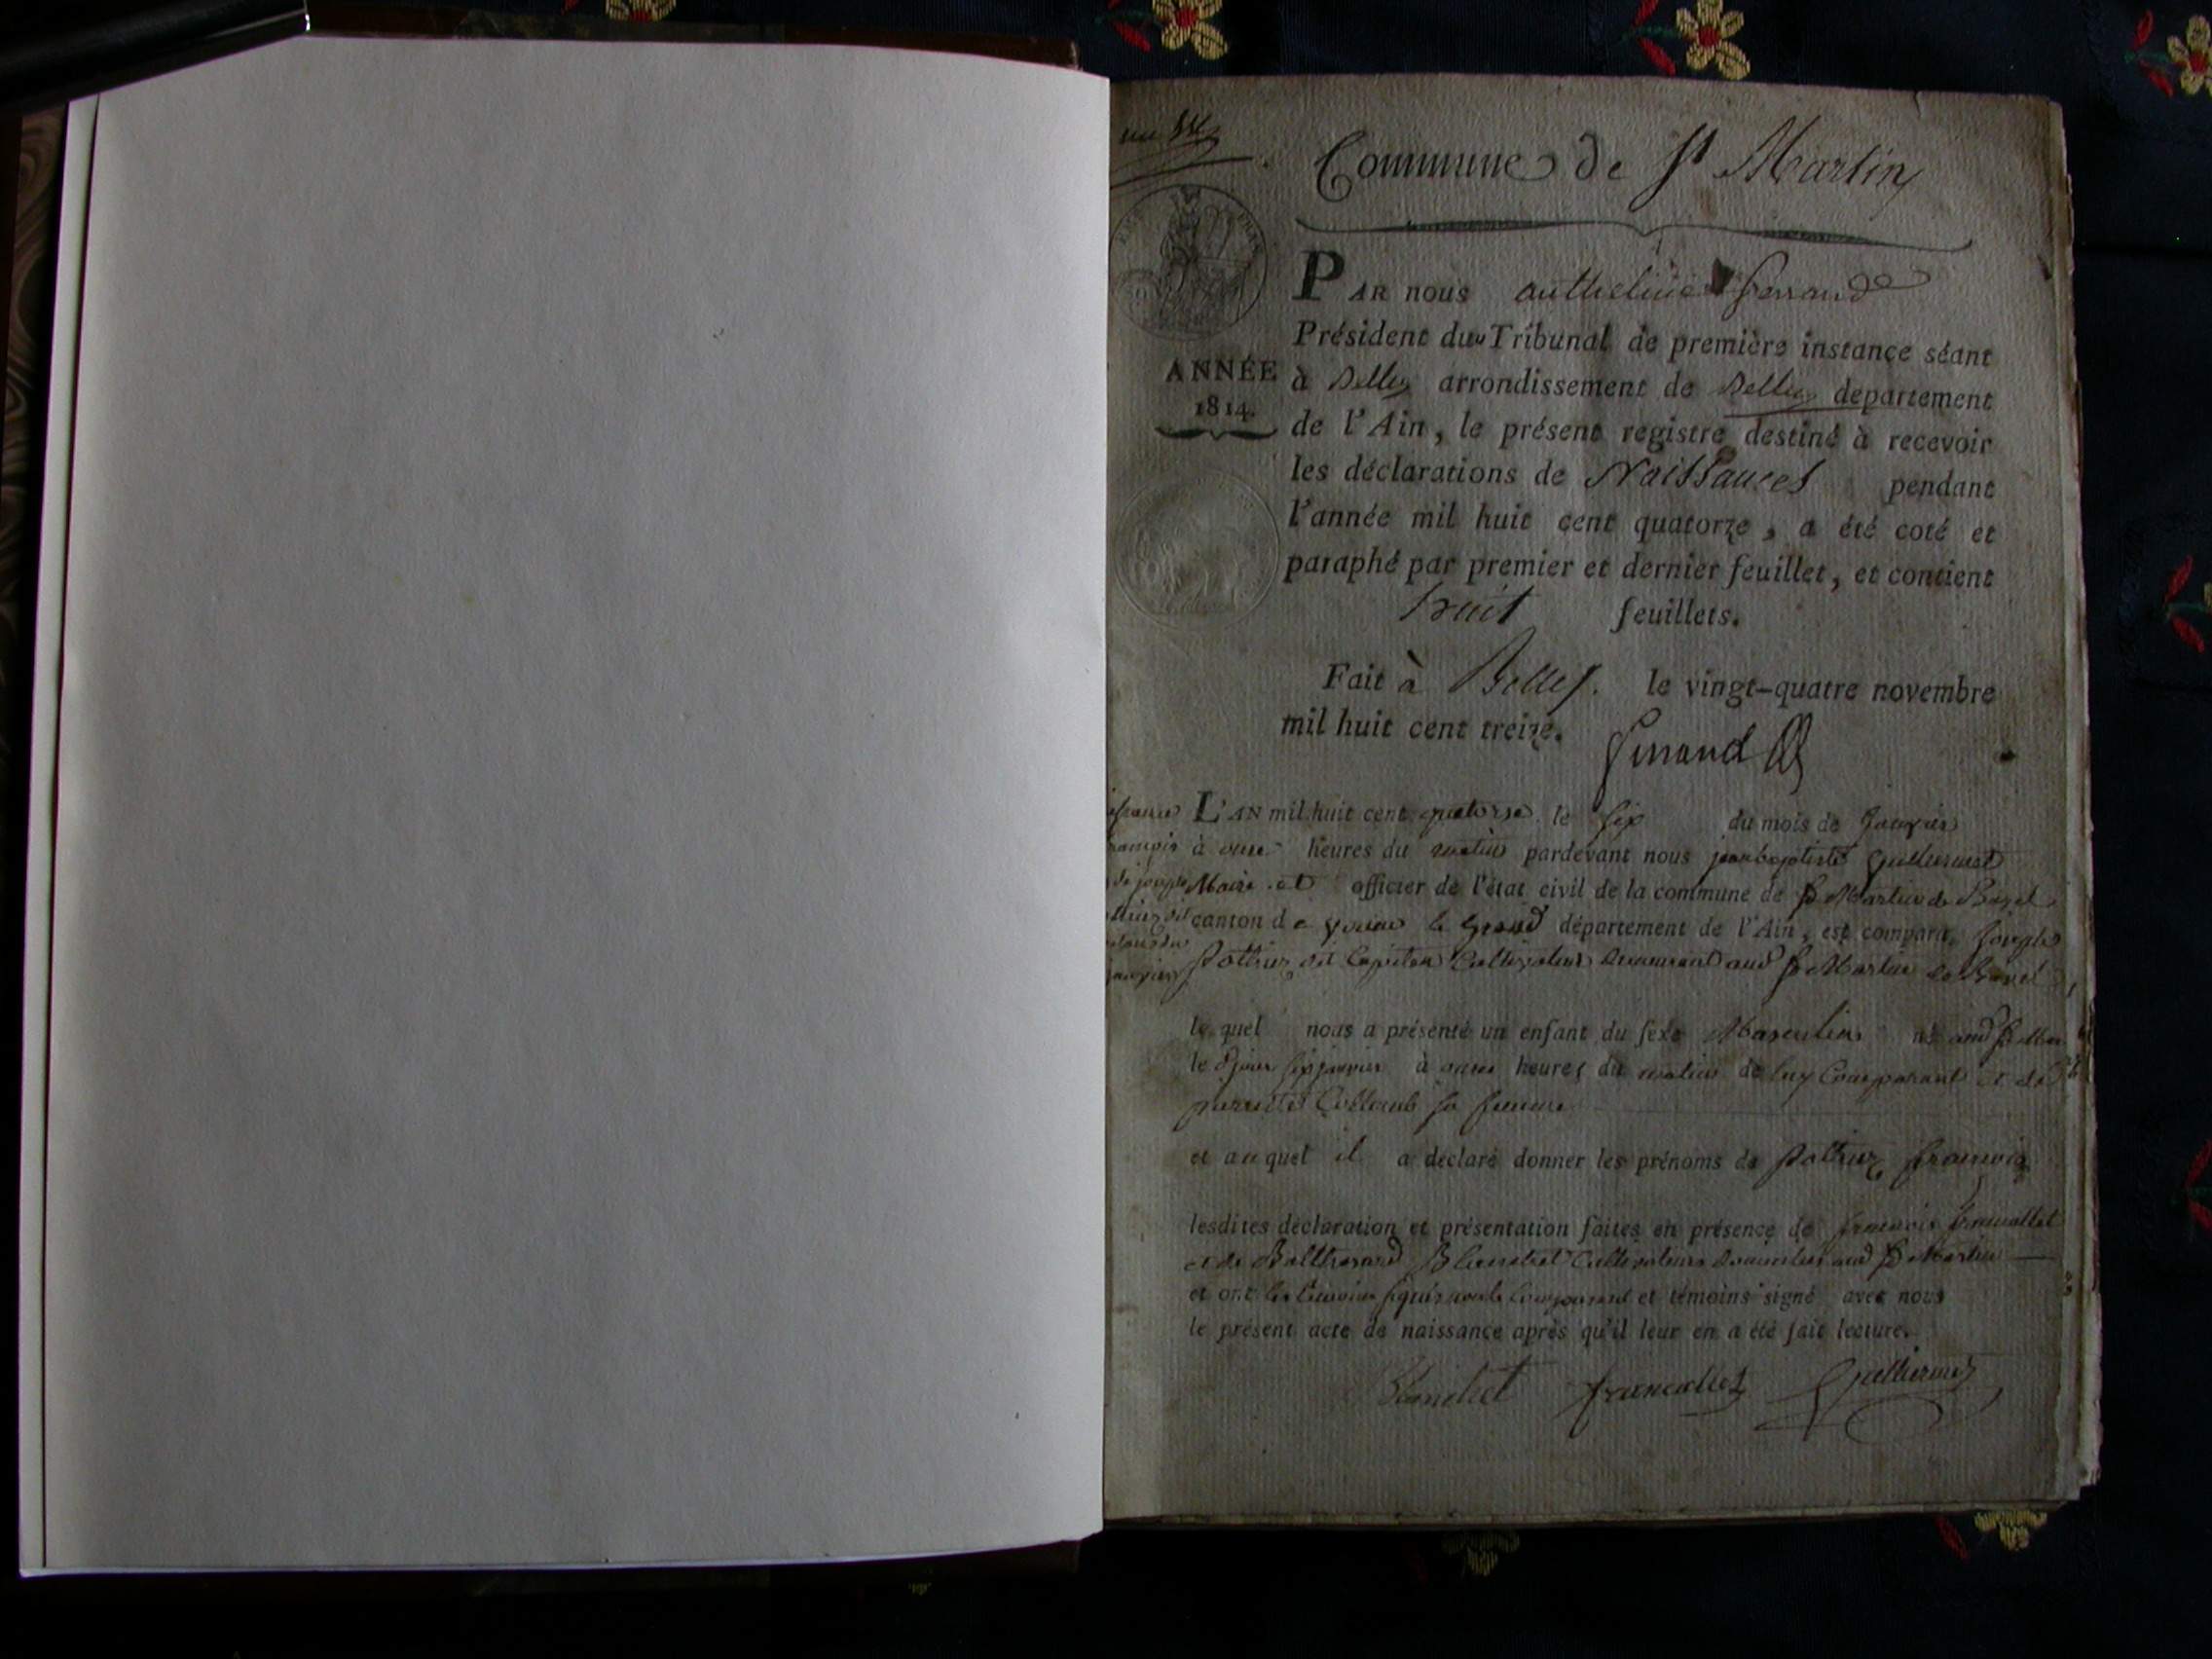 Commune de St Martin
PAR nous anthelme ferrand
Président du Tribunal de première instance séant
ANNÉE
1814.
à Belley arrondissement de Belley département
de l'Ain, le présent registre destiné à recevoir
les déclarations de Naissances pendant
l'année mil huit cent quatorze, a été coté et
paraphé par premier et dernier feuillet, et contient
huit feuillets.
Fait à Belley. le vingt-quatre novembre
mil huit cent treize.
ferrand
L'AN mil huit cent quatorze le six du mois de janvier
à onze heures du matin pardevant nous jean baptiste
Maire et officier de l'état civil de la commune de St Martin de Bavel
canton de le grand département de l'Ain, est comparu joseph
dit Cultivateur demeurant aud St Martin de Bavel
le quel nous a présenté un enfant du sexe Masculin né aud St Mar
le jour six janvier à onze heures du matin de luy Comparant et de
Collomb sa femme
et auquel il a déclaré donner les prénoms de françois
lesdites déclaration et présentation faites en présence de françois francallet
et de Balthazard Blanchet Cultivateurs aud St Martin
et ont les témoins et témoins signé avec nous
le présent acte de naissance après qu'il leur en a été fait lecture.
Blanchet francallet